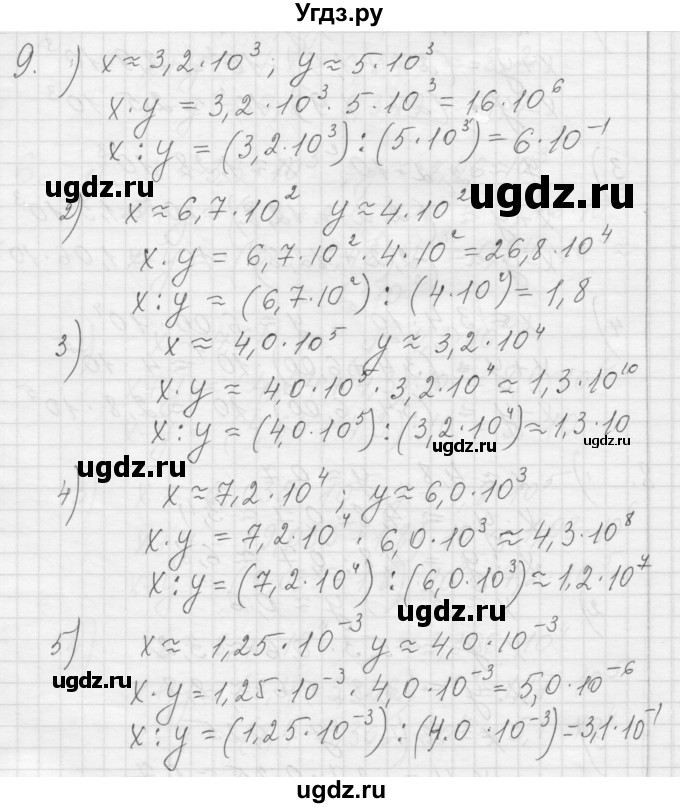 Угдз.ру
9. 1) x ≈ 3,2·10³; y ≈ 5·10³
x·y = 3,2·10³·5·10³ = 16·10⁶
x : y = (3,2·10³) : (5·10³) = 6·10⁻¹
ugdz.ru ugdz.ru
2) x ≈ 6,7·10² y ≈ 4·10²
x·y = 6,7·10²·4·10² = 26,8·10⁴
x : y ≈ (6,7·10²) : (4·10²) = 1,8
3) x ≈ 4,0·10⁵ y ≈ 3,2·10⁴
x·y ≈ 4,0·10⁵·3,2·10⁴ ≈ 1,3·10¹⁰
x : y = (4,0·10⁵) : (3,2·10⁴) ≈ 1,3·10
ugdz.ru
ugdz.ru
4) x ≈ 7,2·10⁴; y ≈ 6,0·10³
x·y = 7,2·10⁴·6,0·10³ ≈ 4,3·10⁸
x : y = (7,2·10⁴) : (6,0·10³) ≈ 1,2·10⁷
ugdz.ru
5) x ≈ 1,25·10⁻³ y ≈ 4,0·10⁻³
ugdz.ru
x·y = 1,25·10⁻³·4,0·10⁻³ = 5,0·10⁻⁶
x : y = (1,25·10⁻³) : (4.0·10⁻³) = 3,1·10⁻¹
ugdz.ru